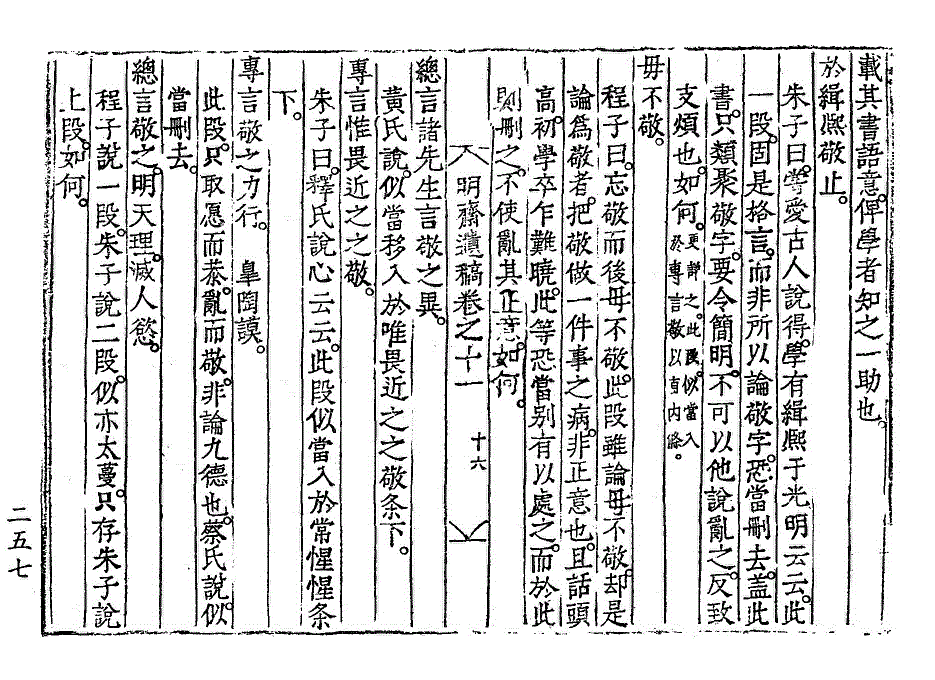 載其書語意。俾學者知之一助也。
於緝熙敬止。
朱子曰。嘗愛古人說得。學有緝熙于光明云云。此
一段。固是格言。而非所以論敬字。恐當刪去。盖此
書。只類聚敬字。要令簡明。不可以他說亂之。反致
支煩也。如何。更詳之。此段似當入
於專言敬以直內條。
毋不敬。
程子曰。忘敬而後毋不敬。此段雖論毋不敬。却是
論爲敬者。把敬做一件事之病。非正意也。且話頭
高。初學卒乍難曉。此等恐當別有以處之。而於此
則刪之。不使亂其正意。如何。
明齋遺稿卷之十一 十六
總言諸先生言敬之異。
黃氏說。似當移入於唯畏近之之敬条下。
專言惟畏近之之敬。
朱子曰。釋氏說心云云。此段似當入於常惺惺条
下。
專言敬之力行。 皐陶謨。
此段。只取愿而恭。亂而敬。非論九德也。蔡氏說似
當刪去。
總言敬之。明天理。滅人慾。
程子說一段。朱子說二段。似亦太蔓。只存朱子說
上段。如何。
二五七